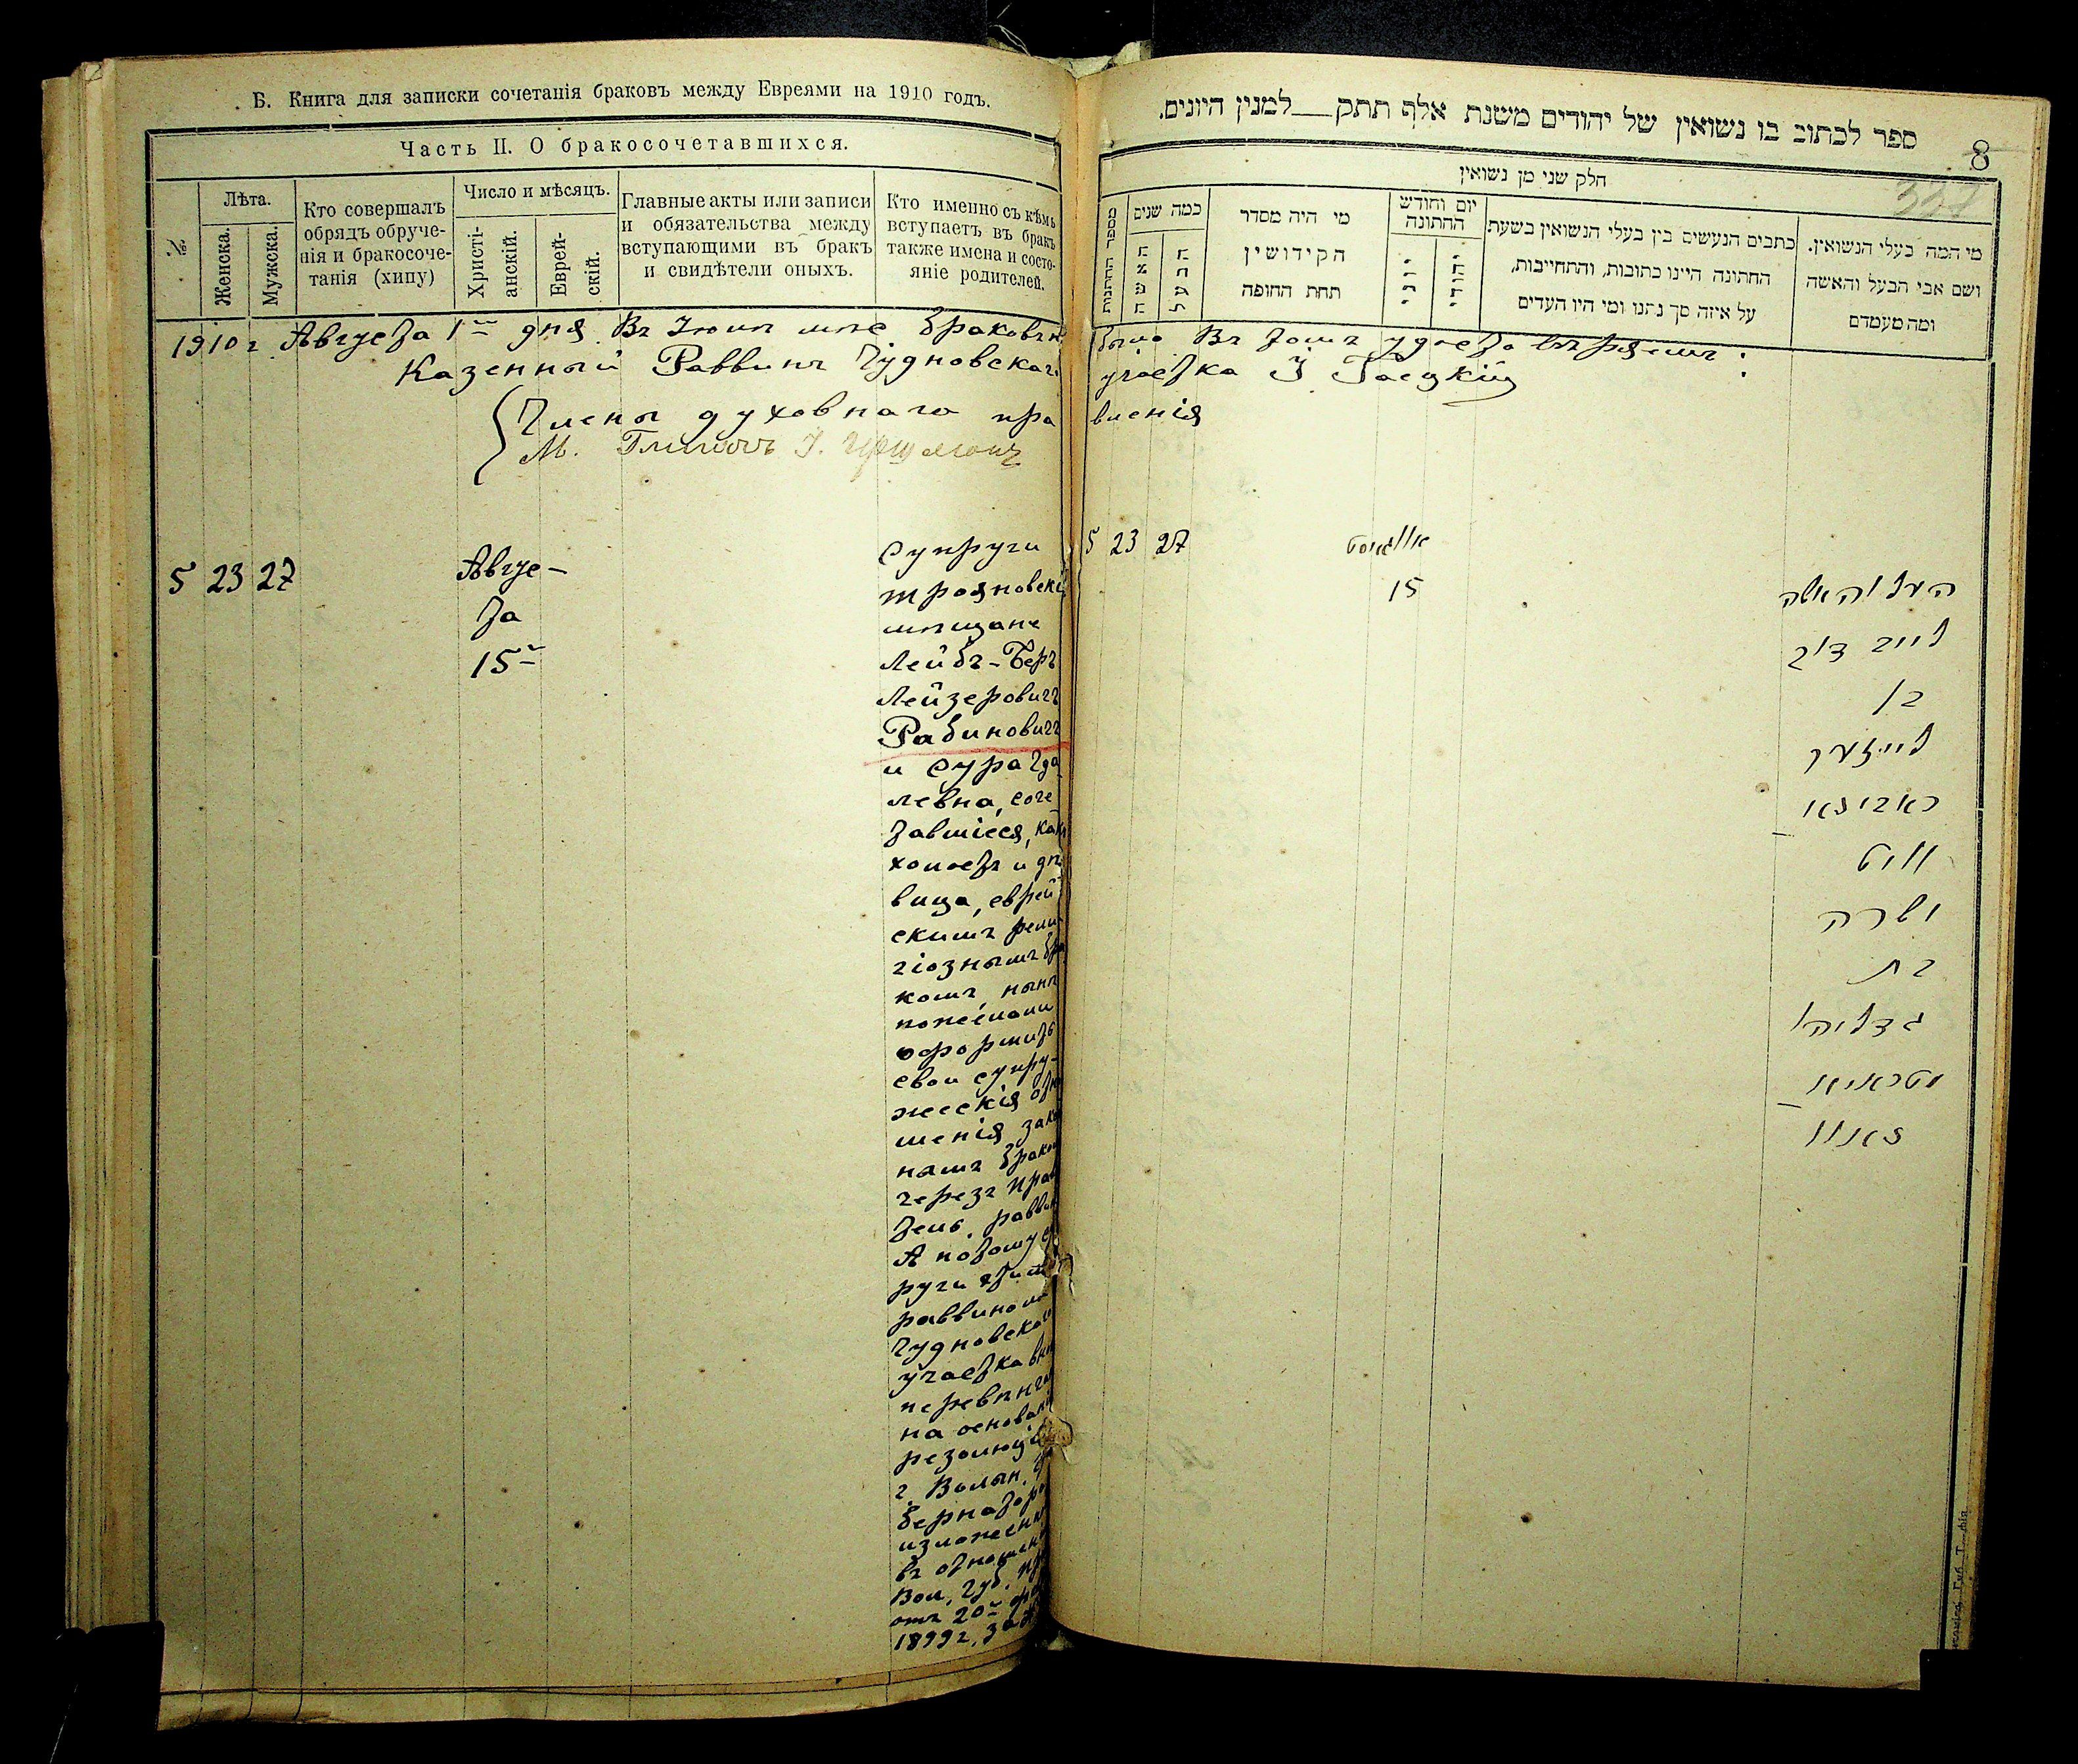 Б. Книга для записки сочетанія браковъ между Евреями на 1910 годъ.
Часть II. О бракосочетавшихся.
№
Лѣта.
Женска.
Мужска.
Кто совершалъ
обрядъ обруче-
нія и бракосоче-
танія (хипу)
Число и мѣсяцъ.
Христі-
анскій.
Еврей-
скій.
Главные акты или записи
и обязательства между
вступающими въ бракъ
и свидѣтели оныхъ.
Кто именно съ кѣмъ
вступаетъ въ бракъ
также имена и состо-
яніе родителей.
1910 г Августа 1го дня. Въ Іюлѣ мѣс браковъ н
Казенный Раввинъ Чудновскаго
Члены духовнаго пра
М.
5 23 27
Авгус-
та
15го
Супруги
трояновскіе
мѣщане
Лейбъ-Беръ
Лейзеровичъ
Рабиновичъ
и Сура Гда
левна, соче
тавшіеся, какъ
холостъ и дѣ
вица, еврей
скимъ рели
гіознымъ бра
комъ, нынѣ
пожелали
оформить
свои супру-
жескія отно
шенія закон
нымъ бракомъ
черезъ прави
тель. раввин
А потому суп
руги эти
раввиномъ
Чудновскаго
участка вн
перевѣнчан
на основаніи
резолюціи
г. Волын. Гу
бернатора
изложенной
въ отношеніи
Вол. Губ. пр
отъ 20го
1899 г. за №
ספר לכתוב בו נשואין של יהודים משנת אלף תתק למנין היונים.
8
327
חלק שני מן נשואין
מספר החתונות
כמה שנים
האשה
הבעל
מי היה מסדר
הקידושין
תחת החופה
יום וחודש
החתונה
יוני
יהודי
כתבים הנעשים בין בעלי הנשואין בשעת
החתונה היינו כתובות, והתחייבות,
על איזה סך נתנו ומי היו העדים
מי המה בעלי הנשואין.
ושם אבי הבעל והאשה
ומה מעמדם
было Въ томъ удостовѣряемъ:
участка І Гаецкій
вленія
5 23 27
אווגוסט
15
הבעל והאשה
לייב דוב
בן
לייזער
ראבינאו
וויט
ושרה
בת
גדליהו
מטראיא
נאווו